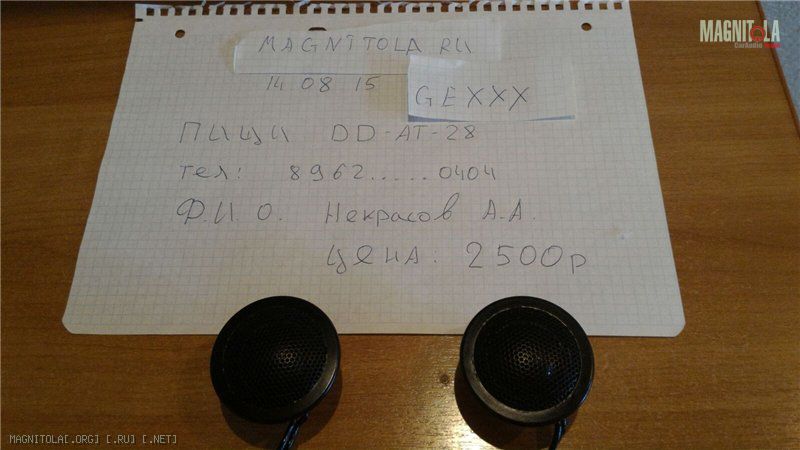 MAGNITOLA
CarAudio
MAGNITOLA RU
14 08 15
GEXXX
ПИЩИ DD-AT-28
тел: 8962.....0404
Ф.И.О. Некрасов А.А.
ЦЕНА: 2500р
MAGNITOLA[.ORG] [.RU] [.NET]